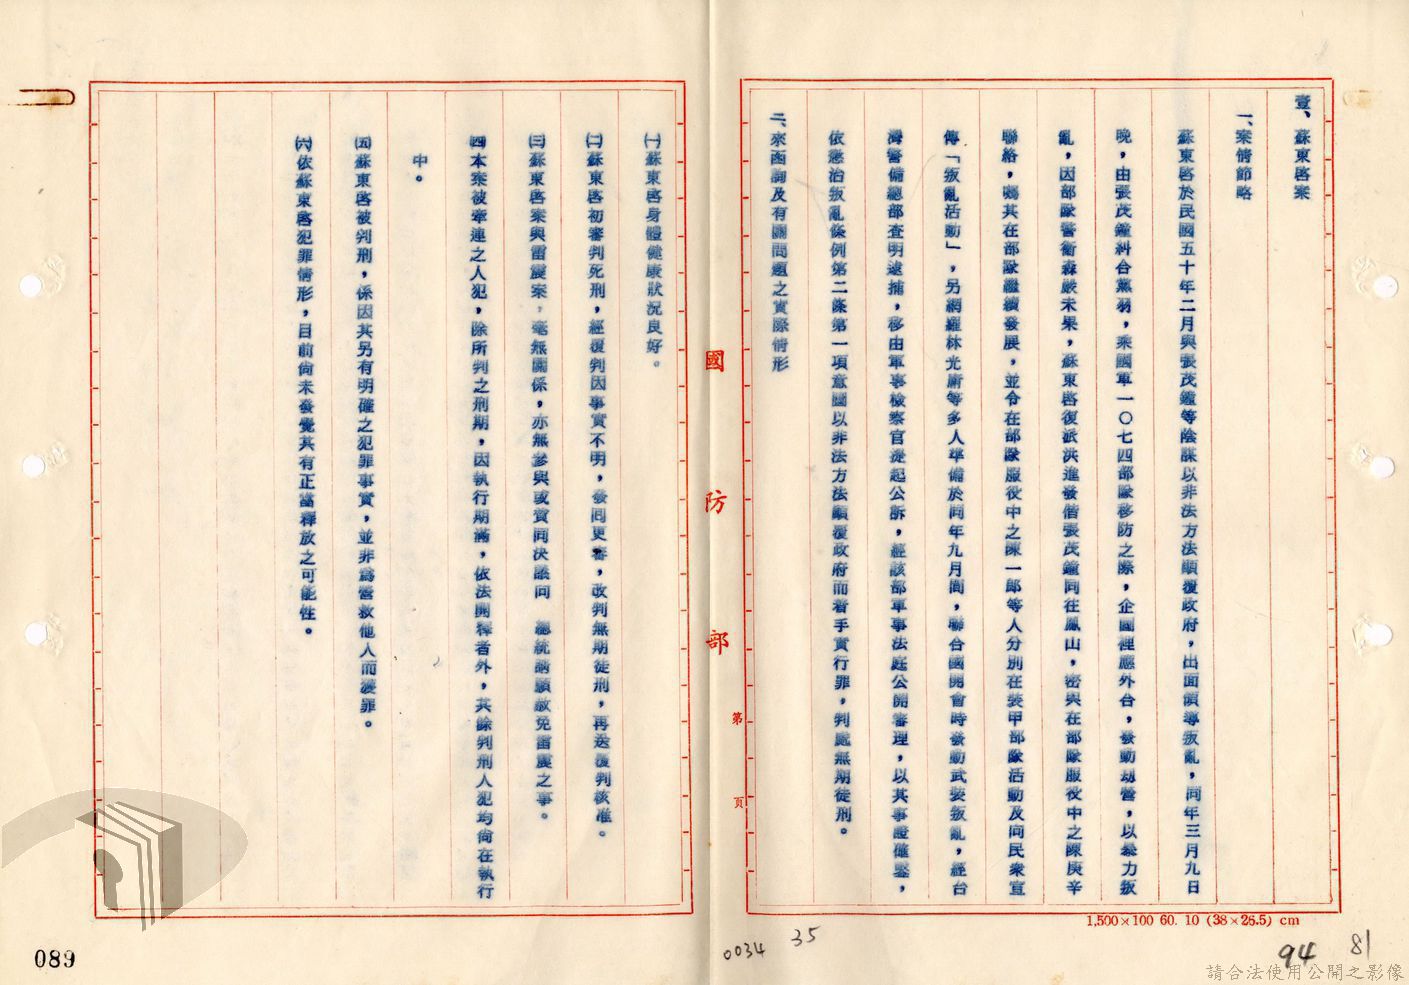 壹、蘇東啓案
一、案情節略
蘇東啓於民國五十年二月與張茂鐘等陰謀以非法方法顚覆政府，出面領導叛亂，同年三月九日
晚，由張茂鐘糾合黨羽，乘國軍一〇七四部隊移防之際，企圖裡應外合，發動劫營，以暴力叛
亂，因部隊警衛森嚴未果，蘇東啓復派洪進發偕張茂鐘同在鳳山，密與在部隊服役中之陳庚辛
聯絡，囑其在部隊繼續發展，並令在部隊服役中之陳一郎等人分別在裝甲部隊活動及向民衆宣
傳「叛亂活動」，另網羅林光庸等多人準備於同年九月間，聯合國開會時發動武裝叛亂，經台
灣警備總部查明逮捕，移由軍事檢察官提起公訴，經該部軍事法庭公開審理，以其事證確鑿，
依懲治叛亂條例第二條第一項意圖以非法方法顚覆政府而着手實行罪，判處無期徒刑。
二、來函詢及有關問題之實際情形
國防部
第　頁
㈠蘇東啓身體健康狀況良好。
㈡蘇東啓初審判死刑，經覆判因事實不明，發回更審，改判無期徒刑，再送覆判核准。
㈢蘇東啓案與雷震案，毫無關係，亦無參與或贊同決議向　總統請願赦免雷震之事。
㈣本案被牽連之人犯，除所判之刑期，因執行期滿，依法開釋者外，其餘判刑人犯均尚在執行
中。
㈤蘇東啓被判刑，係因其另有明確之犯罪事實，並非爲營救他人而獲罪。
㈥依蘇東啓犯罪情形，目前尙未發覺其有正當釋放之可能性。
1,500×100 60. 10 (38×26.5) cm
089
0034
35
94
81
請合法使用公開之影像